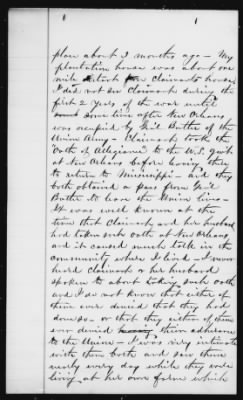 place about 3 months ago — My
plantation house was about one
mile distant from claimants house
I did not see Claimant during the
first 2 years of the war until
some time after New Orleans
was occupied by Gen'l Butler of the
Union Army — Claimant took the
Oath of Allegiance to the U.S. gov't
at New Orleans before having there
to return to Mississippi — and they
both obtained a pass from Gen'l
Butler to leave the Union lines —
It was well known at the
time that Claimant and her husband
had taken such oath at New Orleans
and it caused much talk in the
community where I lived — I never
heard claimant or her husband
spoken to about taking such oath
and I do not know that either of
them ever denied that they had
done so — or that they either of them
ever denied having their adherence
to the Union — I was very intimate
with them both and saw them
nearly every day which they were
living at her own farm which